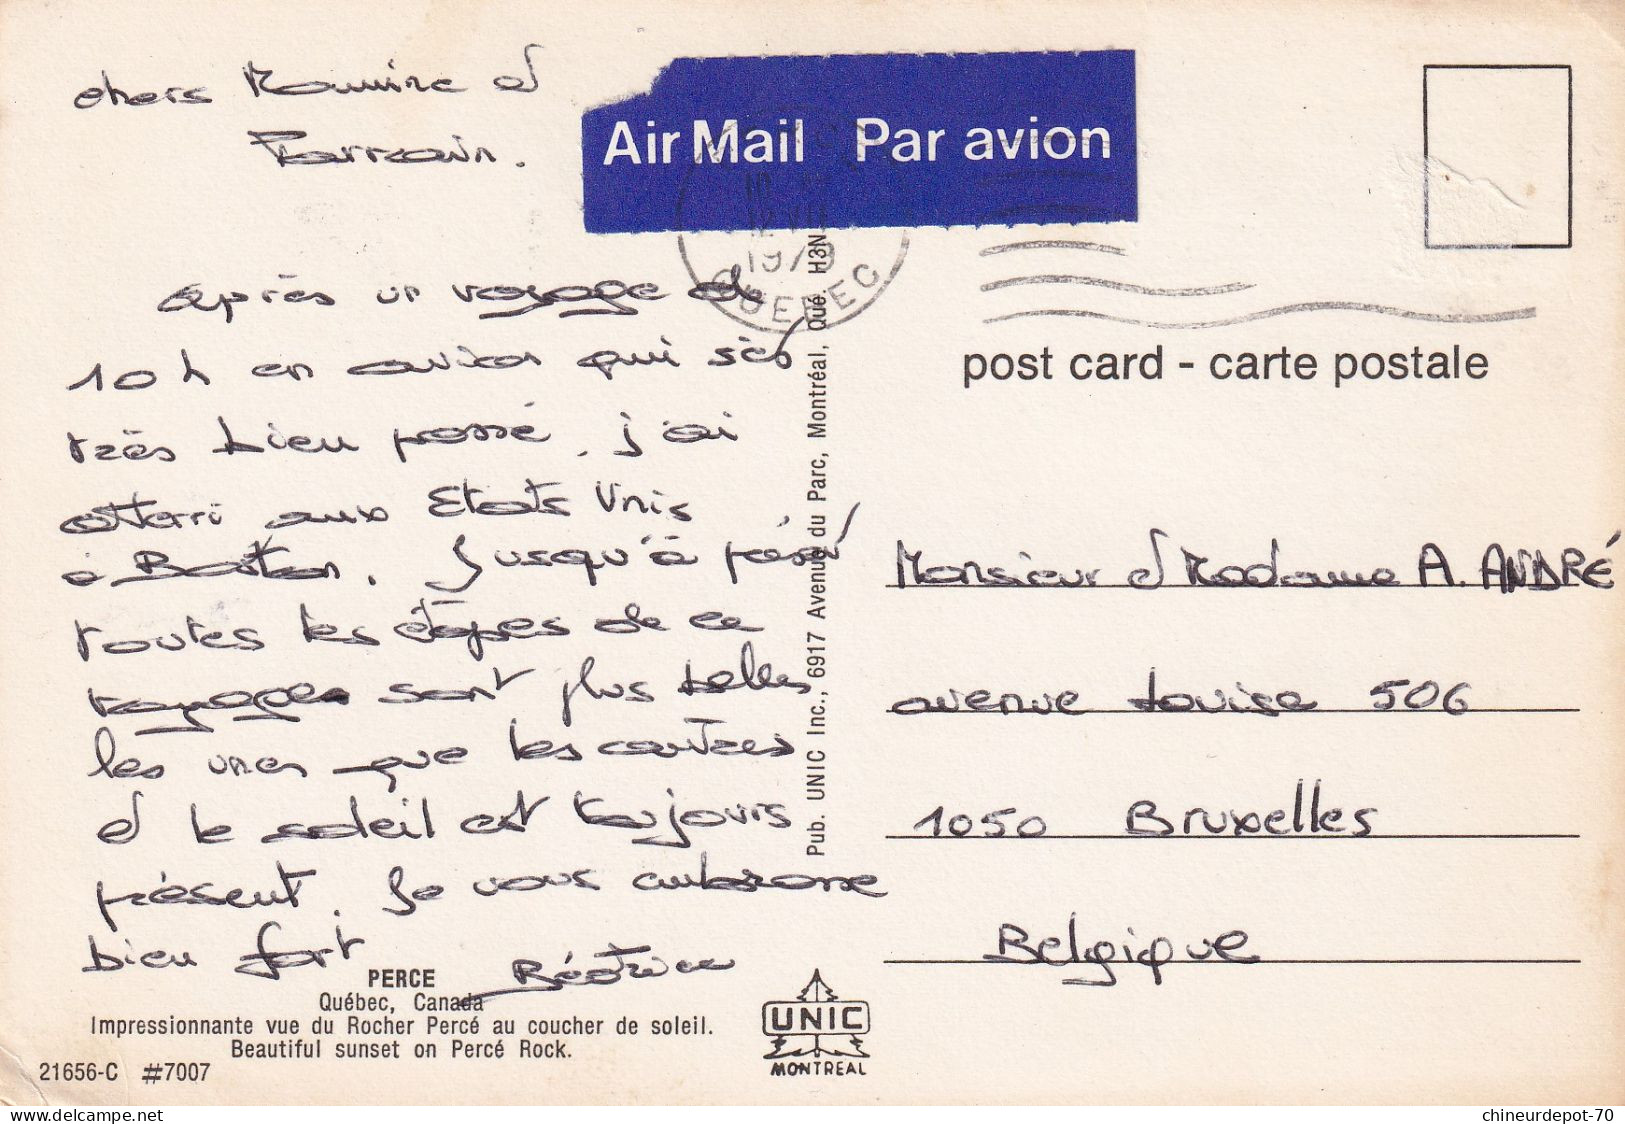 chers Mamine et
Parrain.
Après un voyage de
10 h en avion qui s'est
très bien passé, j'ai
atterri aux Etats Unis
à Boston. Jusqu'à présent
toutes les étapes de ce
voyage sont plus belles
les unes que les autres
et le soleil est toujours
présent. Je vous embrasse
bien fort
Béatrice
PERCE
Québec, Canada
Impressionnante vue du Rocher Percé au coucher de soleil.
Beautiful sunset on Percé Rock.
21656-C #7007
Air Mail Par avion
12 VII
197
QUEBEC
Pub. UNIC Inc., 6917 Avenue du Parc, Montréal, Qué. H3N
UNIC
MONTREAL
post card - carte postale
Monsieur et Madame A. ANDRÉ
avenue Louise 506
1050 Bruxelles
Belgique
chineurdepot-70